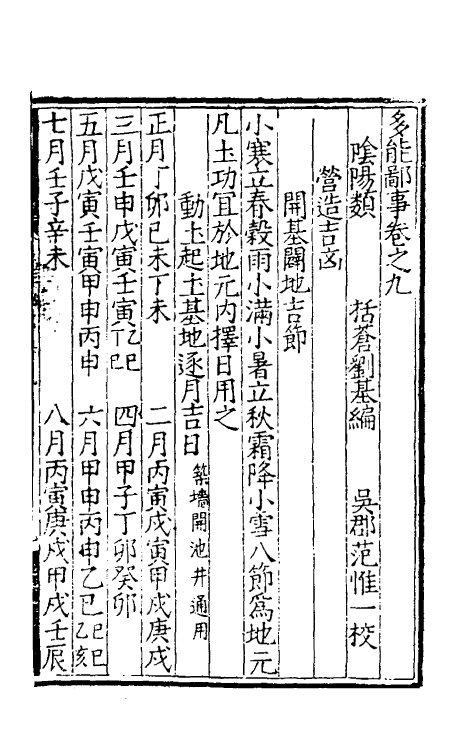 多能鄙事卷之九
陰陽類　括蒼劉基編　吳郡范惟一校
營造吉凶
開基闢地吉節
小寒立春穀雨小滿小暑立秋霜降小雪八節爲地元
凡土功宜於地元內擇日用之
動土起土基地逐月吉日 築墻開池井通用
正月丁卯己未丁未　二月丙寅戊寅甲戌庚戌
三月壬申戊寅壬寅丁巳　四月甲子丁卯癸卯
五月戊寅壬寅甲申丙申　六月甲申丙申乙巳己巳乙亥
七月壬子辛未　八月丙寅庚戌甲戌壬辰